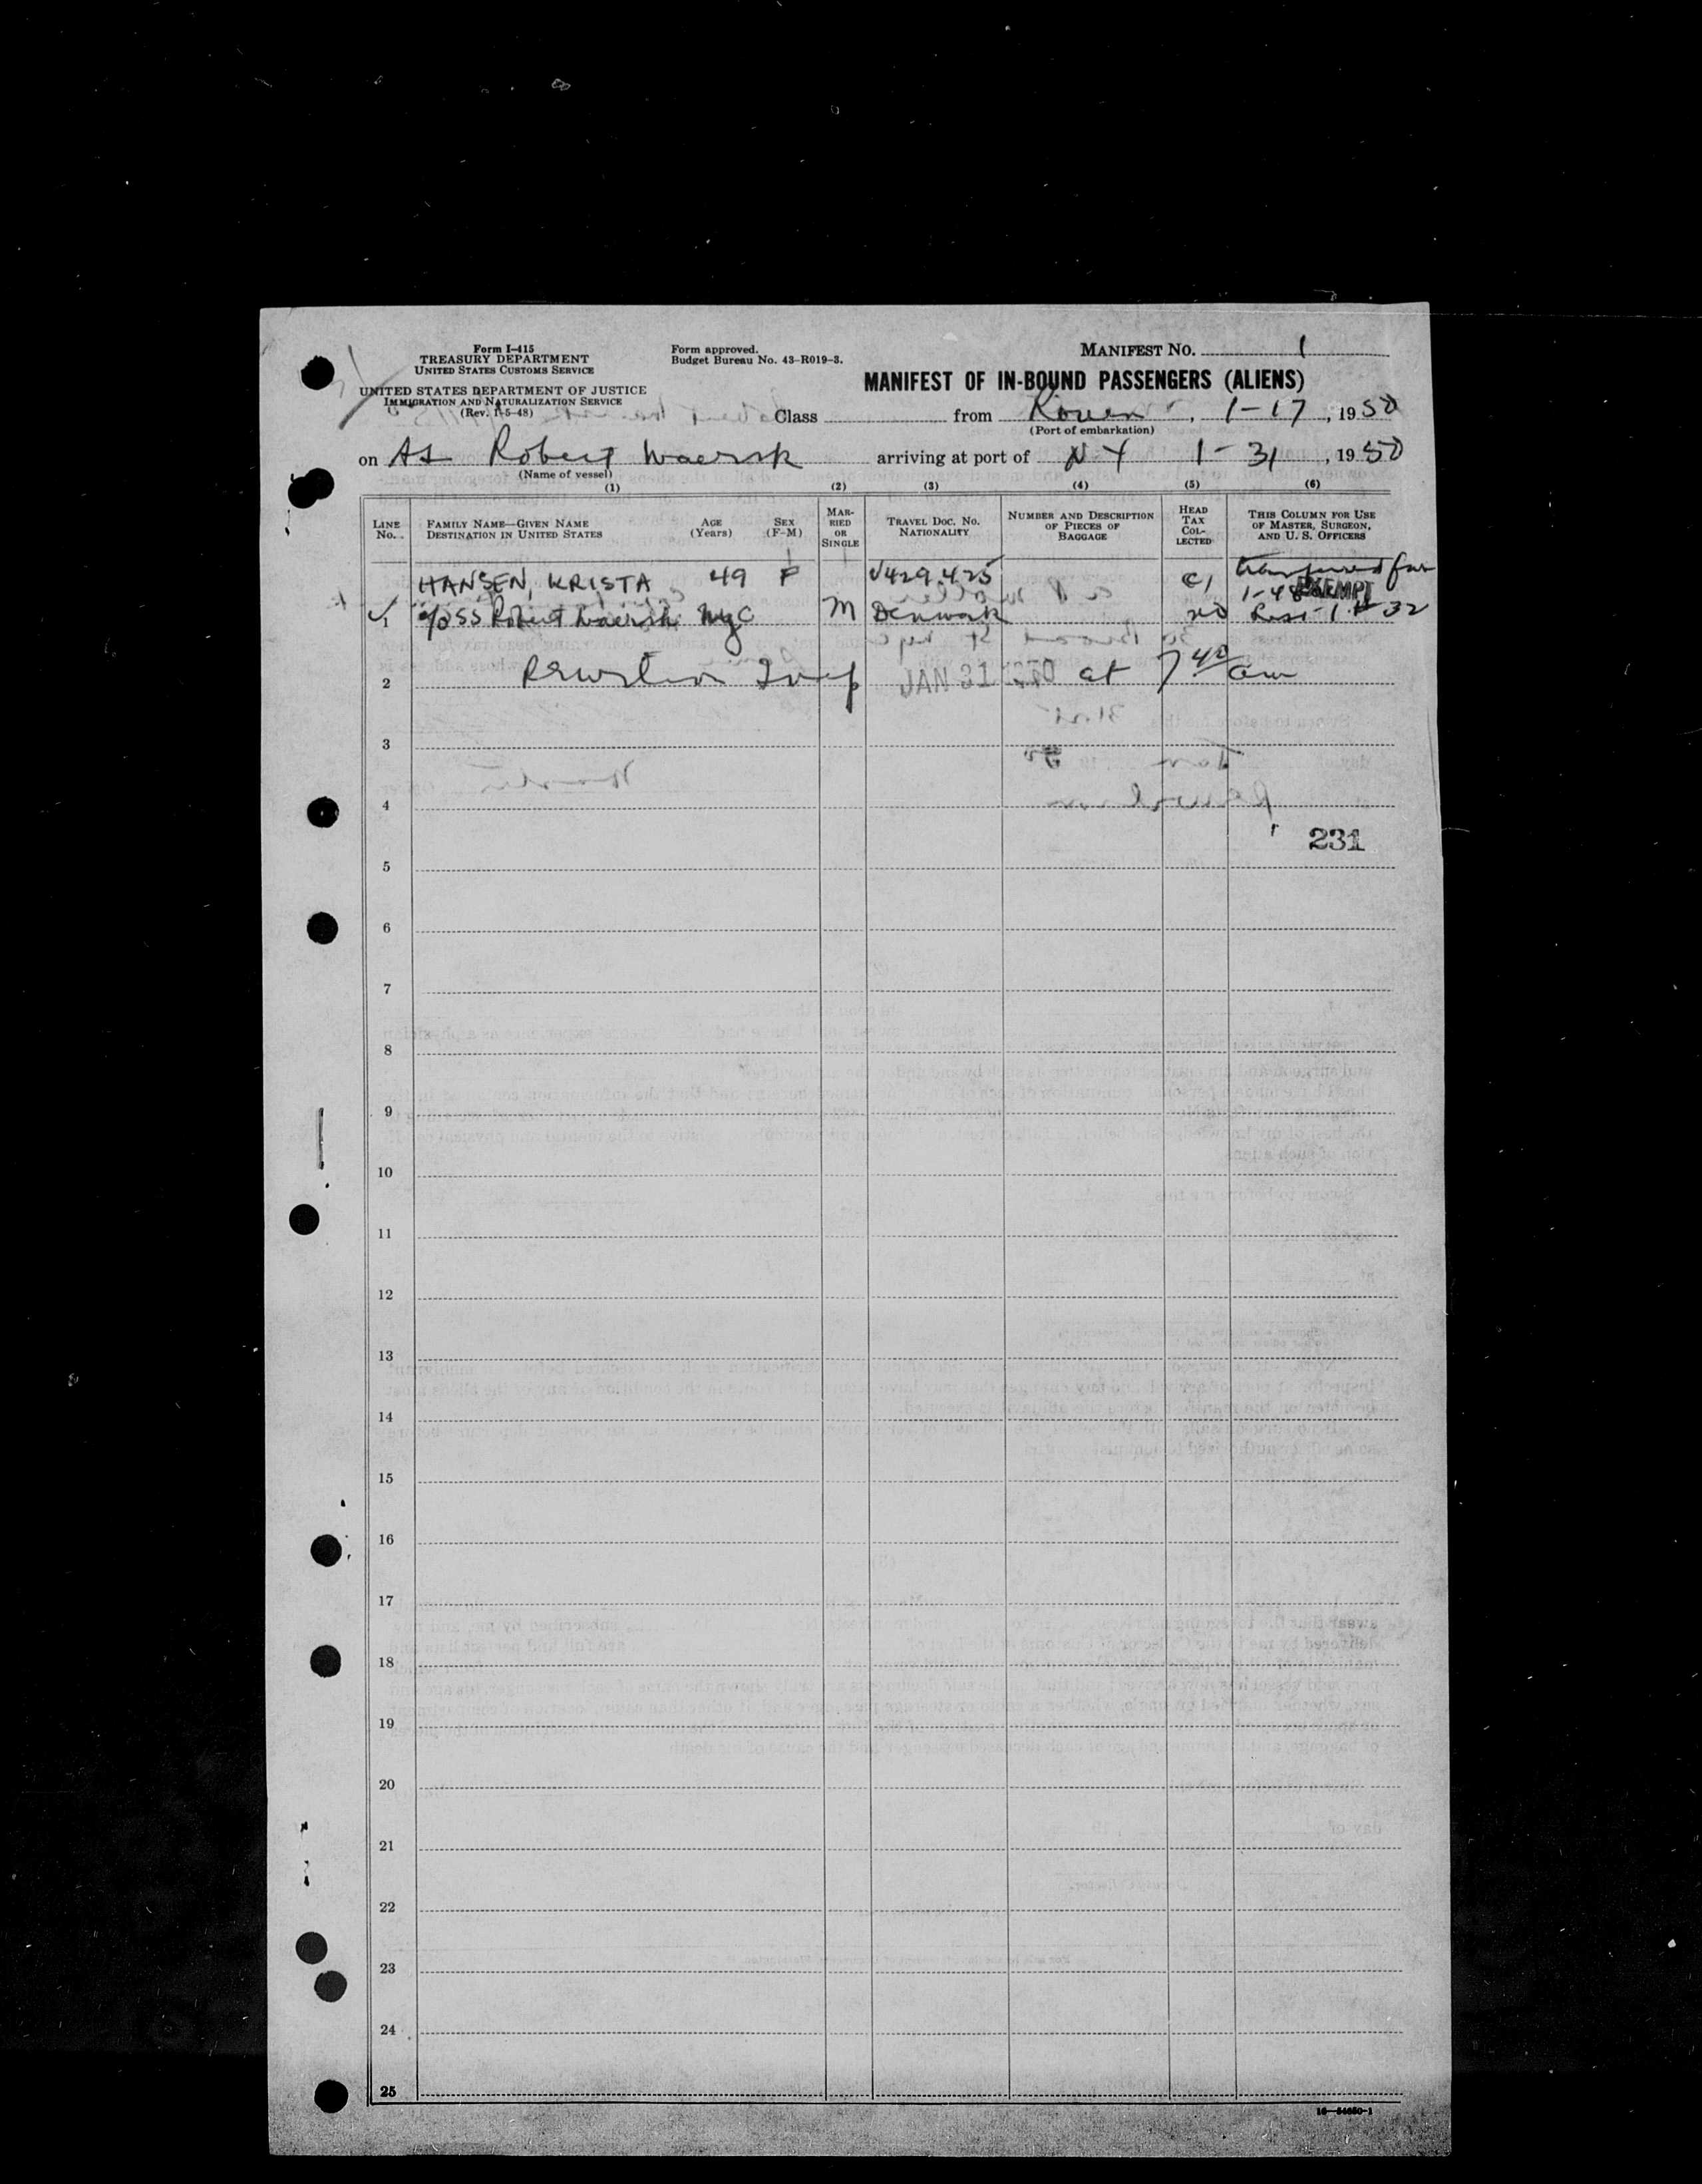 Form I-415
TREASURY DEPARTMENT
UNITED STATES CUSTOMS SERVICE
UNITED STATES DEPARTMENT OF JUSTICE
IMMIGRATION AND NATURALIZATION SERVICE
(Rev. 1-5-48)
Form approved.
Budget Bureau No. 43-R019-3.
MANIFEST NO. 1
MANIFEST OF IN-BOUND PASSENGERS (ALIENS)
Class from Rouen, 1-17, 1950
(Port of embarkation)
on Robert Maersk arriving at port of NY 1-31, 1950
(Name of vessel)
(1) (2) (3) (4) (5) (6)
LINE NO.
FAMILY NAME—GIVEN NAME
DESTINATION IN UNITED STATES
AGE (Years)
SEX (F-M)
MARRIED OR SINGLE
TRAVEL DOC. NO.
NATIONALITY
NUMBER AND DESCRIPTION OF PIECES OF BAGGAGE
HEAD TAX COLLECTED
THIS COLUMN FOR USE OF MASTER, SURGEON, AND U. S. OFFICERS
HANSEN, KRISTA 49 F V429.425 transferred from
1-48 EXEMPT
1 c/o SS Robert Maersk NYC M Denmark no 32
2 Insp JAN 31 1950 at 7 40 am
3
4
231
5
6
7
8
9
10
11
12
13
14
15
16
17
18
19
20
21
22
23
24
25